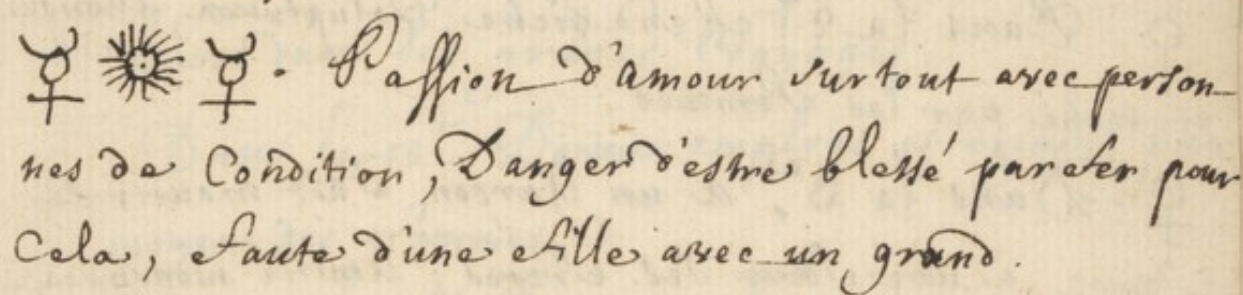 ☿ ☉ ☿. Passion d'amour surtout avec person-
nes de Condition, Danger d'estre blessé par fer pour
Cela, faute d'une fille avec un grand.